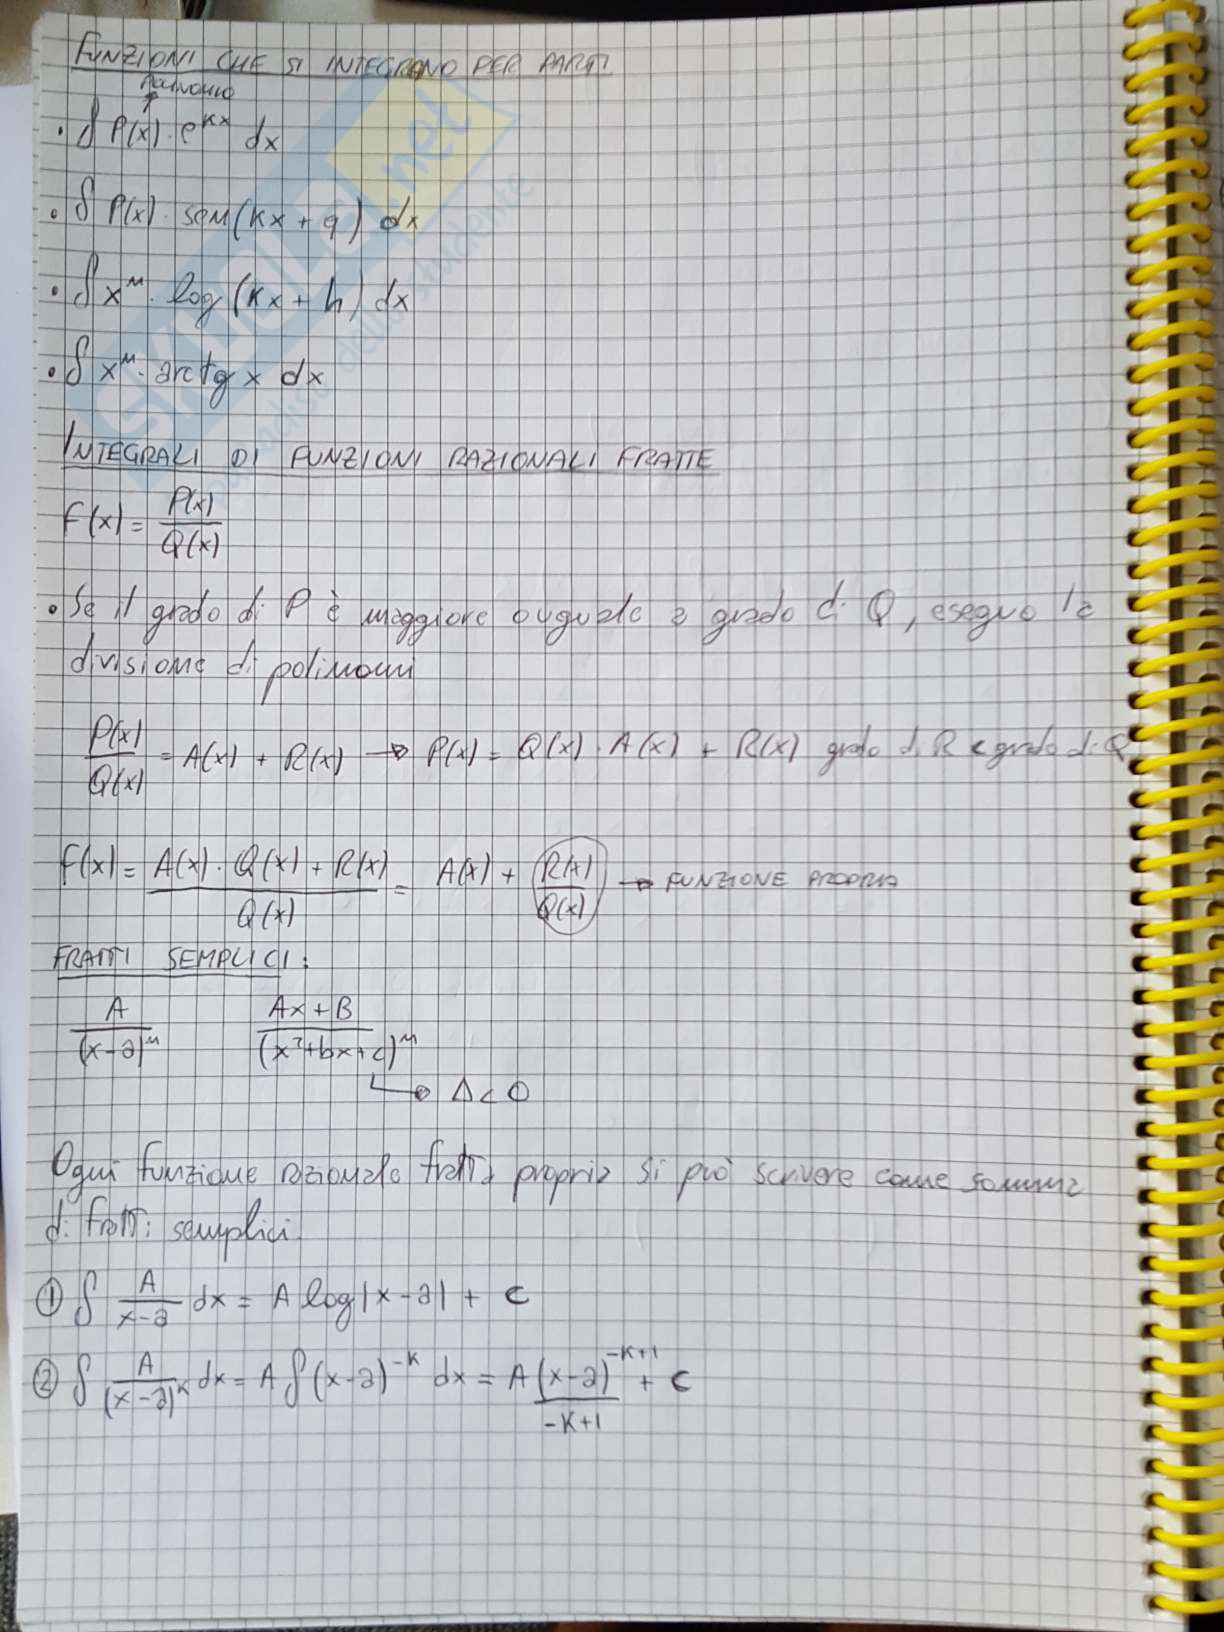 FUNZIONI CHE SI INTEGRANO PER PARTI
POLINOMIO
↑
• ∫ P(x) · e^{kx} dx
• ∫ P(x) · sen(kx + q) dx
• ∫ x^n · log(kx + h) dx
• ∫ x^n · arctg x dx
INTEGRALI DI FUNZIONI RAZIONALI FRATTE
F(x) = P(x)/Q(x)
• Se il grado di P è maggiore o uguale a grado di Q, eseguo la
divisione di polinomi
P(x)/Q(x) = A(x) + R(x) → P(x) = Q(x) · A(x) + R(x) grado di R < grado di Q
F(x) = (A(x) · Q(x) + R(x))/Q(x) = A(x) + R(x)/Q(x) → FUNZIONE PROPRIA
FRATTI SEMPLICI:
A/(x-a)^n (Ax+B)/(x²+bx+c)^n
→ Δ < 0
Ogni funzione razionale fratta propria si può scrivere come somma
di fratti semplici
① ∫ A/(x-a) dx = A log|x-a| + c
② ∫ A/(x-a)^k dx = A ∫ (x-a)^{-k} dx = A (x-a)^{-k+1}/(-k+1) + c
SKUOLA.net
il paradiso dello studente